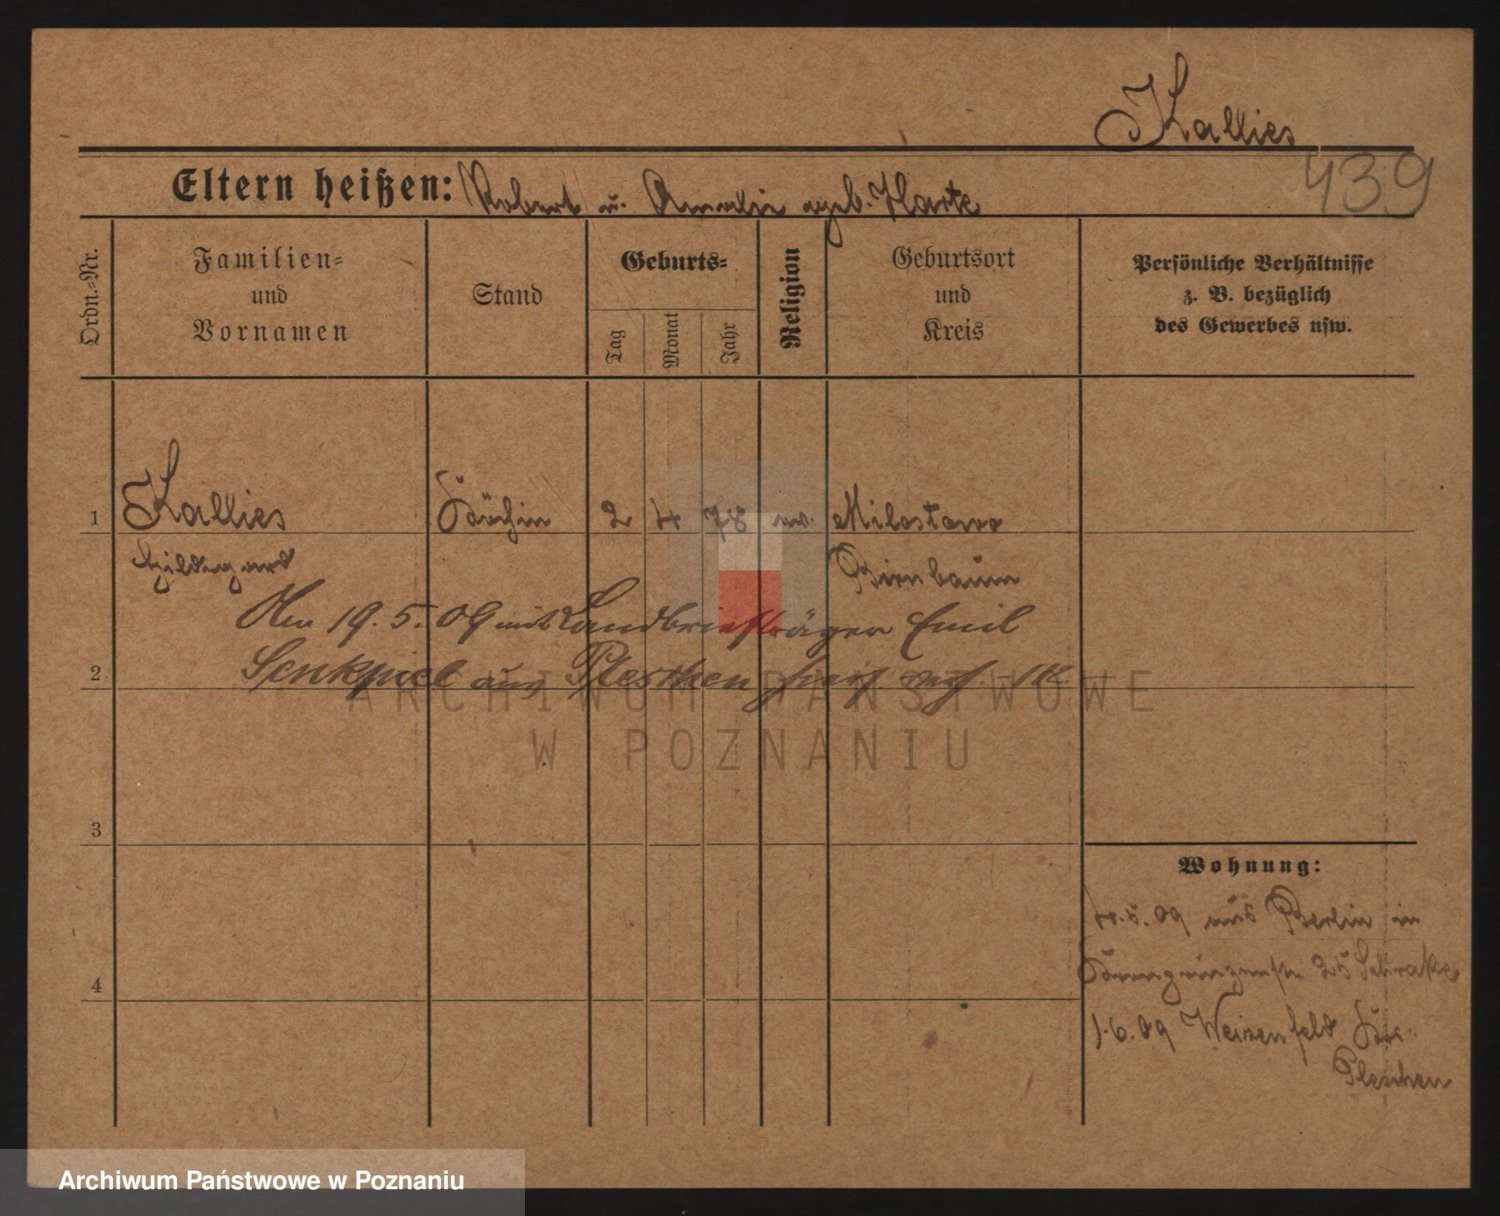 Kallies
439
Eltern heißen: Robert u. Amalie geb. Harte
Ordn.-Nr.
Familien-
und
Vornamen
Stand
Geburts-
Tag
Monat
Jahr
Religion
Geburtsort
und
Kreis
Persönliche Verhältnisse
z. B. bezüglich
des Gewerbes usw.
1 Kallies Köchin 2 4 78 ev. Milostowo
Hildegard Birnbaum
Am 19.5.09 mit Landbriefträger Emil
2 Senkpiel aus Pleschen
ARCHIWUM PAŃSTWOWE
W POZNANIU
3
Wohnung:
4.5.09 aus Berlin in
4 25
1.6.09 Weizenfeld Krs.
Pleschen
Archiwum Państwowe w Poznaniu